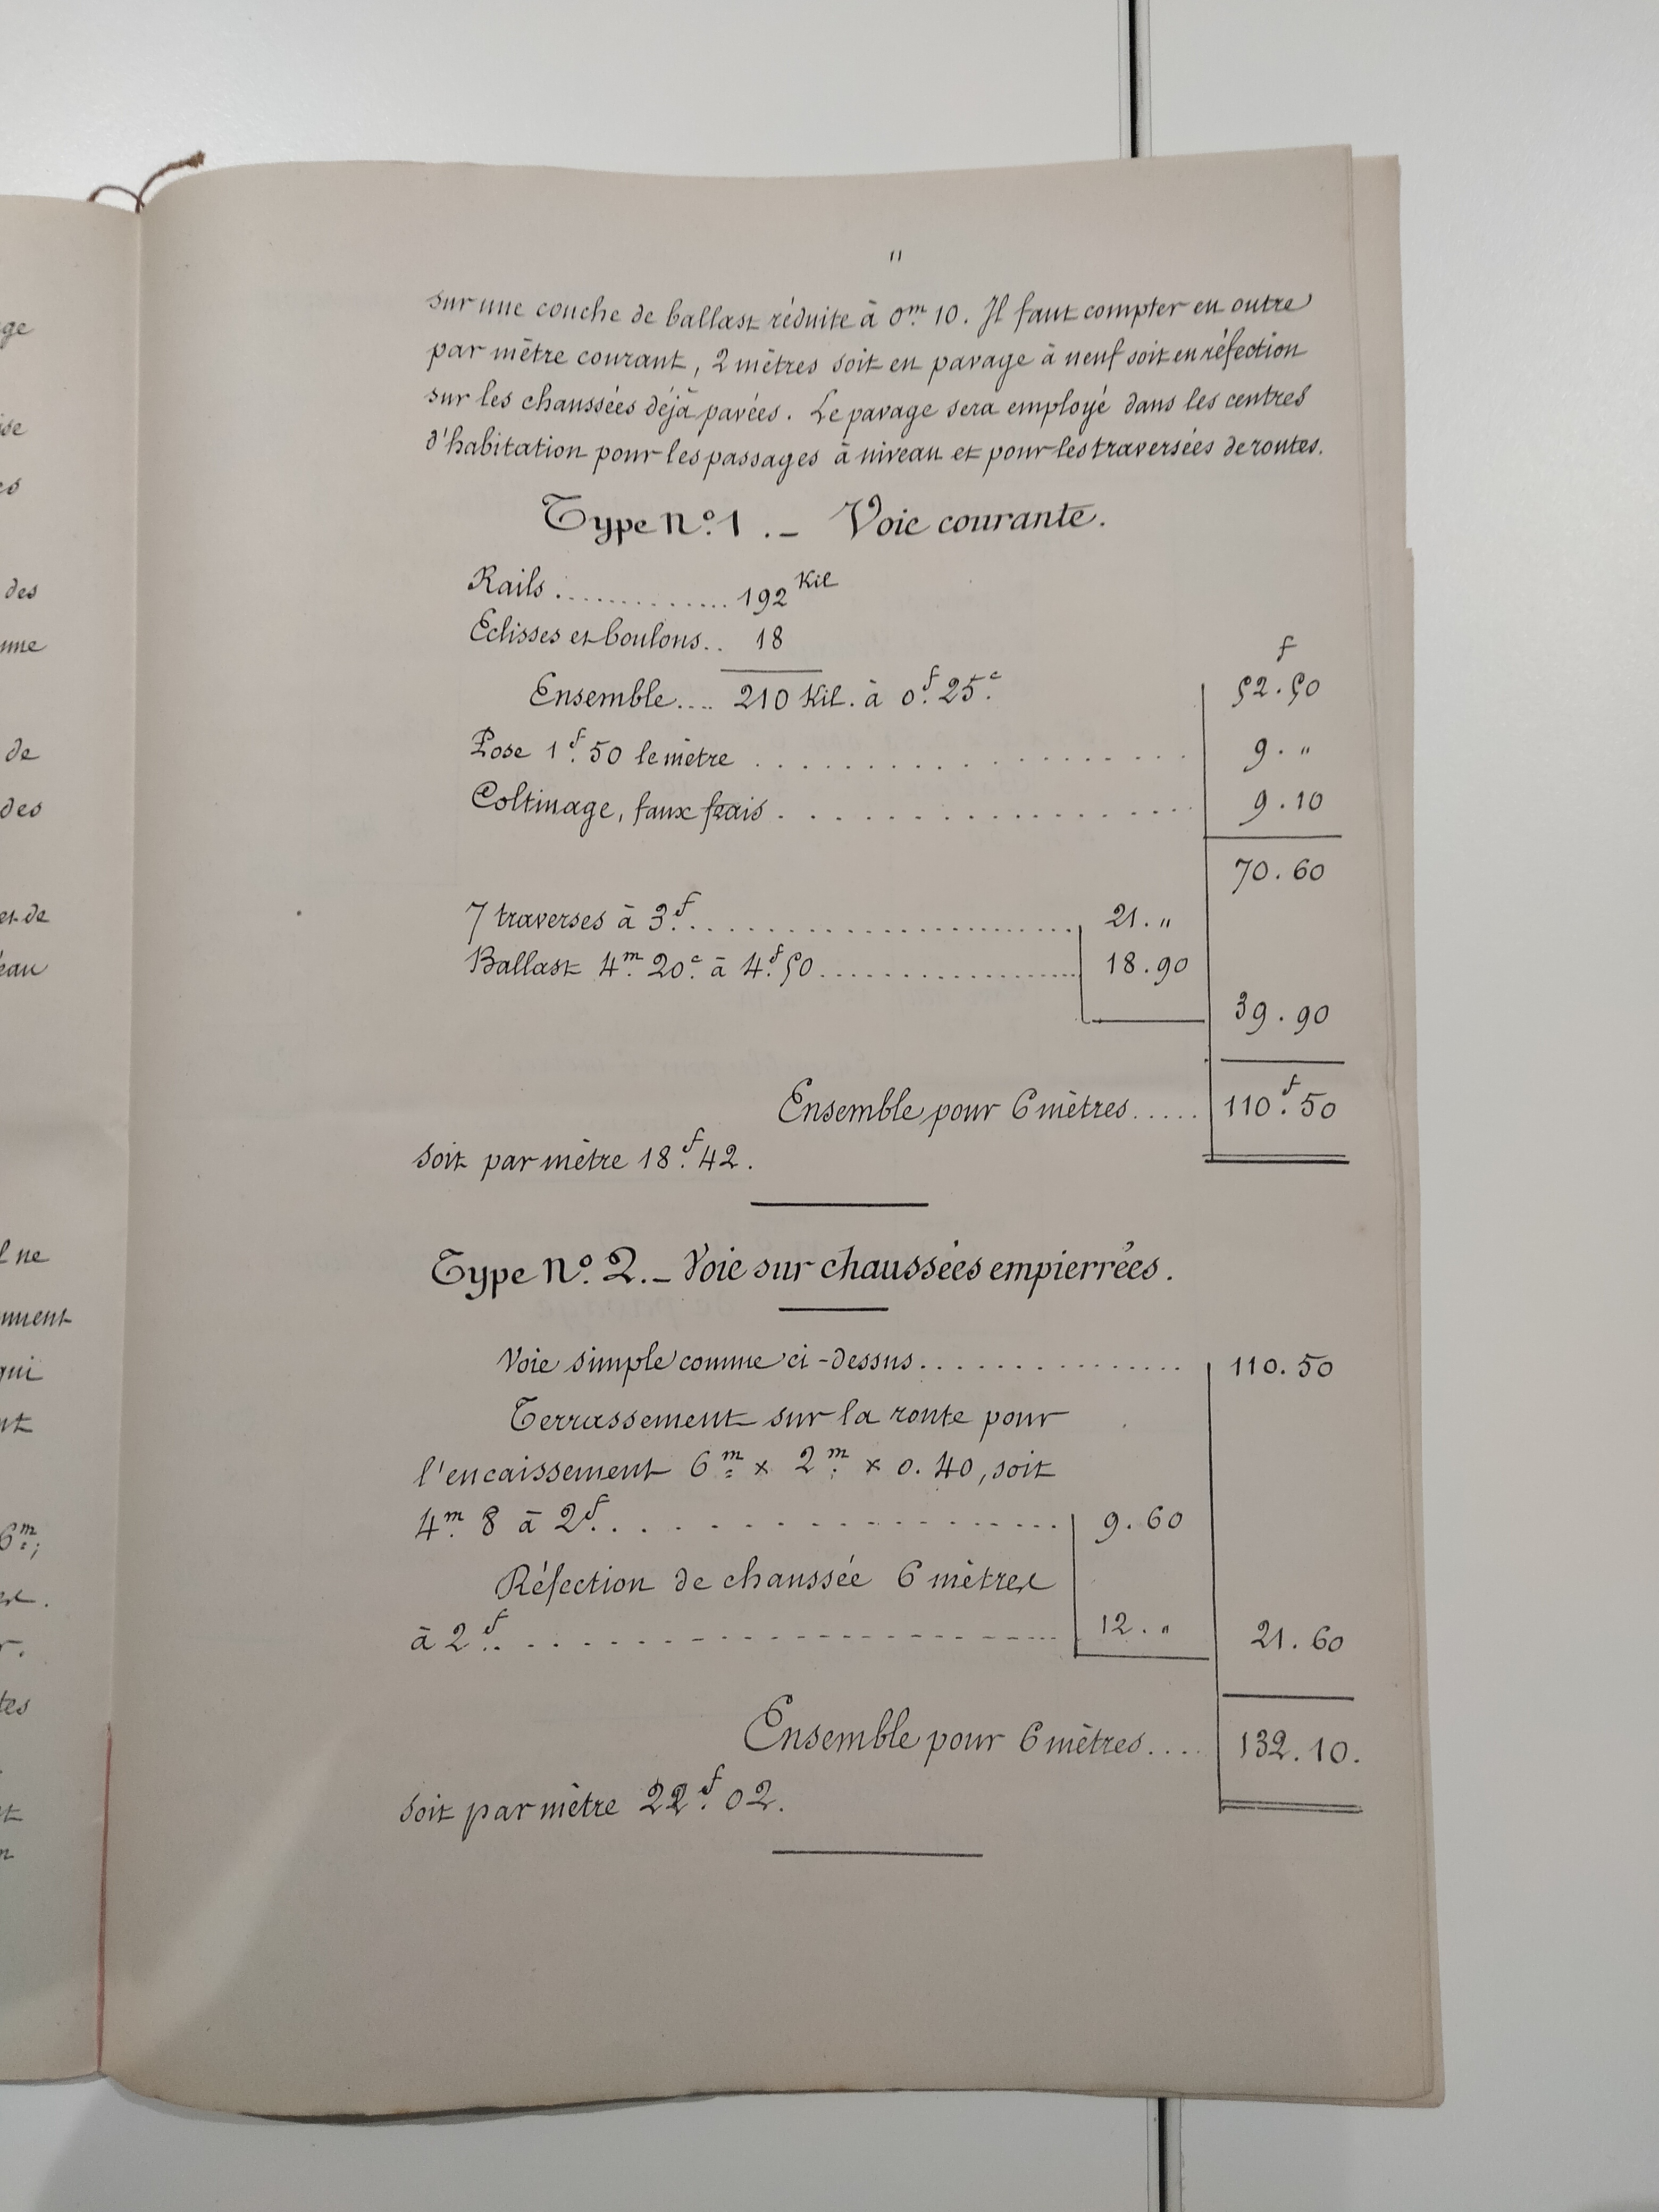 11
sur une couche de ballast réduite à 0m.10. Il faut compter en outre
par mètre courant, 2 mètres soit en pavage à neuf soit en réfection
sur les chaussées déjà pavées. Le pavage sera employé dans les centres
d'habitation pour les passages à niveau et pour les traversées de routes.
Type No.1._ Voie courante.
Rails............... 192 Kil
Eclisses et boulons.. 18
f
Ensemble.... 210 Kil. à 0f.25c. 52.50
Pose 1f.50 le mètre . . . . . . . . . . 9. "
Coltinage, faux frais . . . . . . . . . . 9.10
70.60
7 traverses à 3f. . . . . . . . . . . 21. "
Ballast 4m.20c à 4f.50............... 18.90
39.90
Ensemble pour 6 mètres..... 110f.50
soit par mètre 18f.42.
Type No.2._ Voie sur chaussées empierrées.
Voie simple comme ci-dessus............... 110.50
Terrassement sur la route pour
l'encaissement 6m. x 2m. x 0.40, soit
4m.8 à 2f. . . . . . . . . . . 9.60
Réfection de chaussée 6 mètres
à 2f. . . . . . . . . . . 12. " 21.60
Ensemble pour 6 mètres.... 132.10.
soit par mètre 22f.02.
ge
ise
es
des
nne
de
des
et de
eau
l ne
nnent
qui
nt
6m.;
r.
tes
et
n